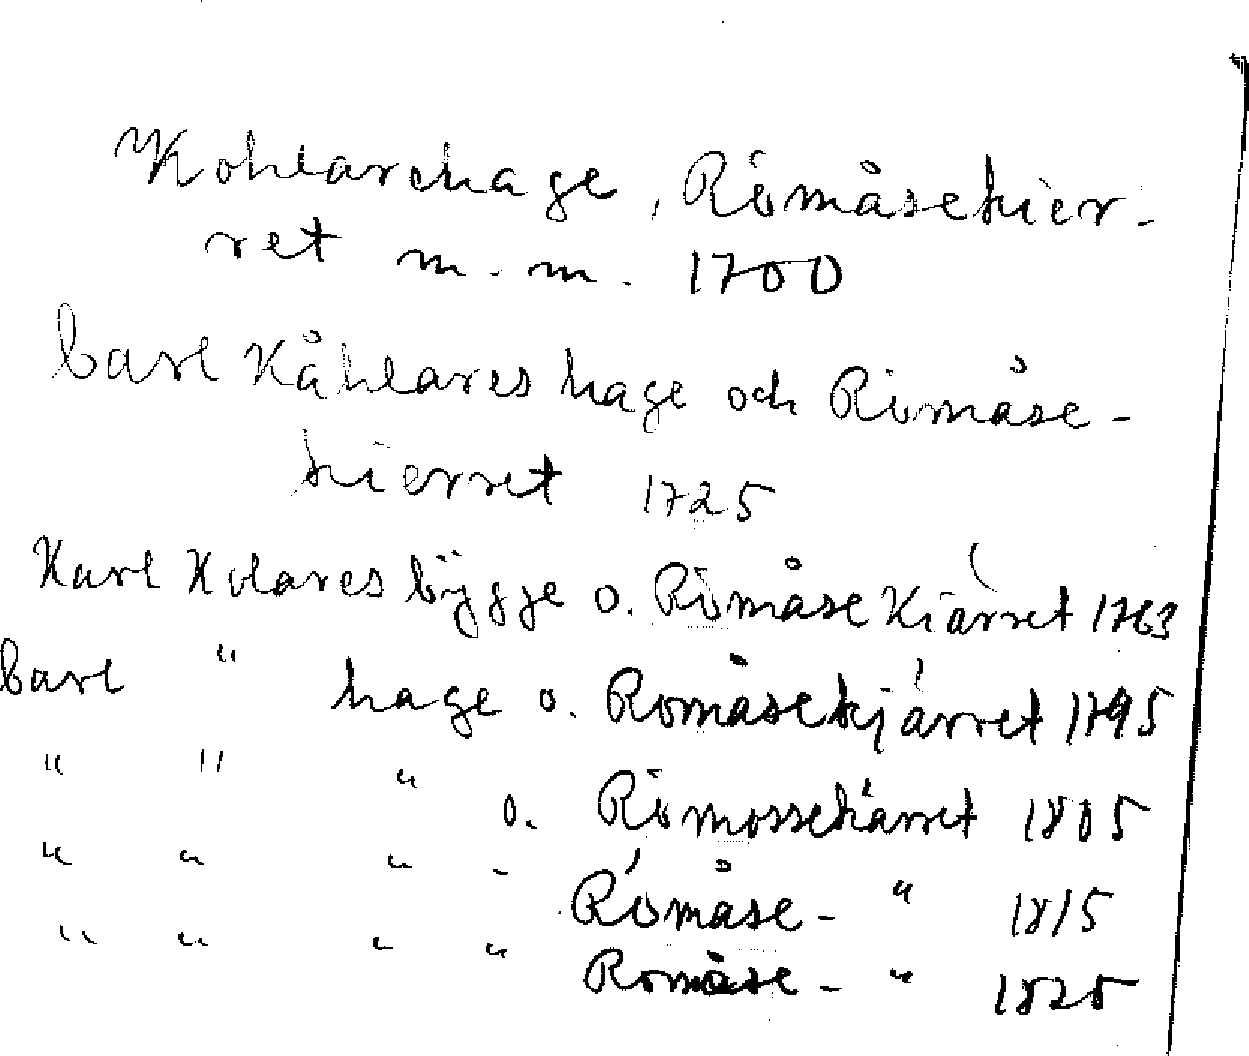 Kohlarehage, Römåsekier-
ret m.m. 1700
Carl Kåhlares hage och Römåse-
kierret 1725
Karl Kolares bÿgge o. Römåse Kiärret 1763
Carl " hage o. Romåsekjärret 1795
" " " o. Römossekärret 1805
" " " " Römåse- " 1815
" " " " Romåse- " 1825